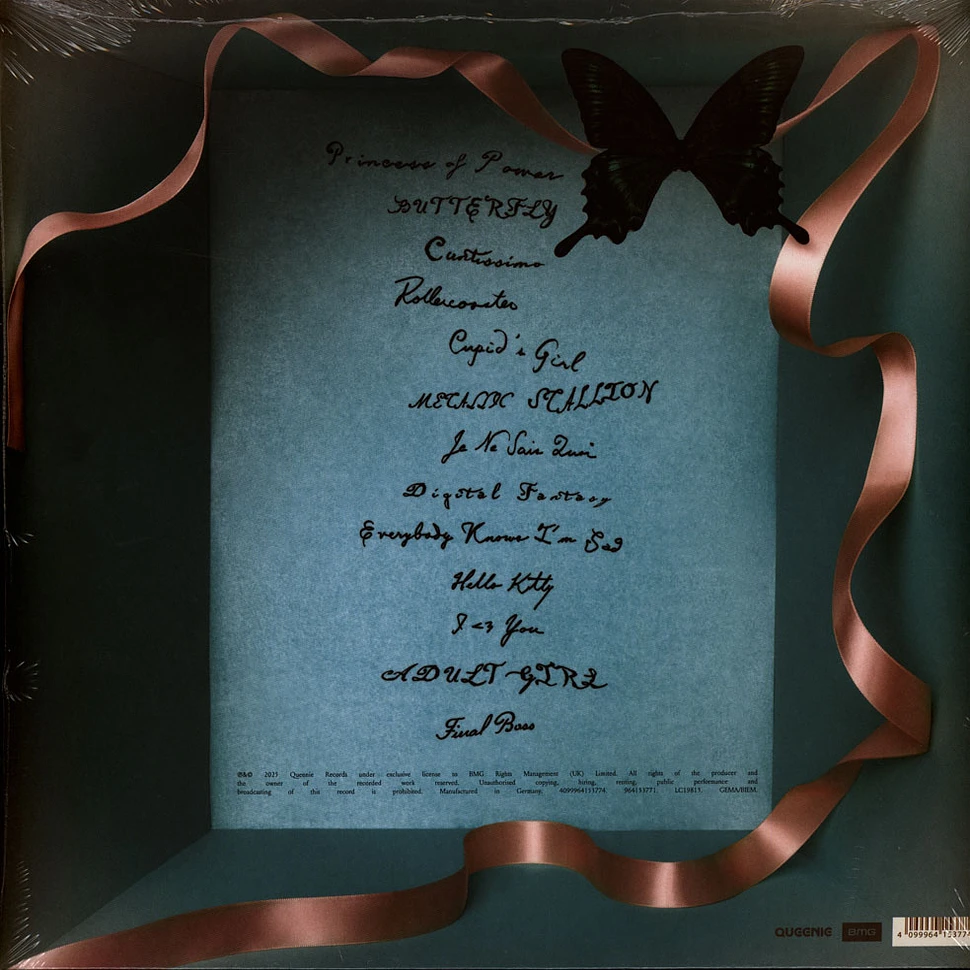 Princess of Power
BUTTERFLY
Cuntissimo
Rollercoaster
Cupid's Girl
METALLIC STALLION
Je Ne Sais Quoi
Digital Fantasy
Everybody Knows I'm Sad
Hello Kitty
I <3 You
ADULT GIRL
Final Boss
℗&© 2025 Queenie Records under exclusive license to BMG Rights Management (UK) Limited. All rights of the producer and
the owner of the recorded work reserved. Unauthorised copying, hiring, renting, public performance and
broadcasting of this record is prohibited. Manufactured in Germany. 4099964153774. 964153771. LC19813. GEMA/BIEM.
QUEENIE BMG
4 099964 153774